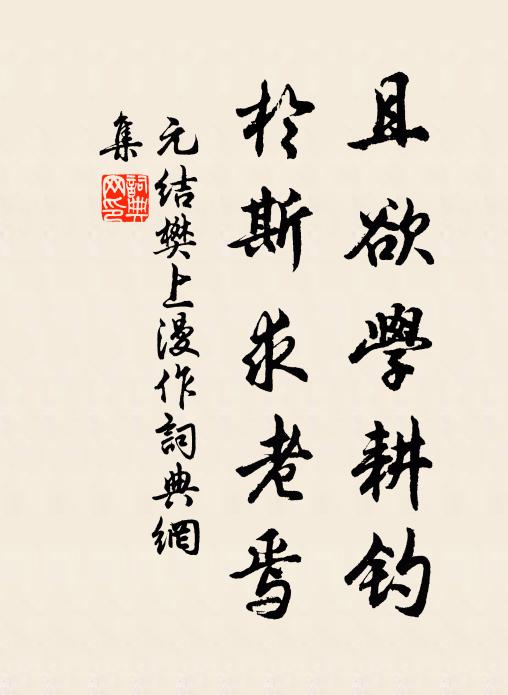 且欲學耕釣
於斯求老焉
元结樊上漫作詞典網
集
詞典網印